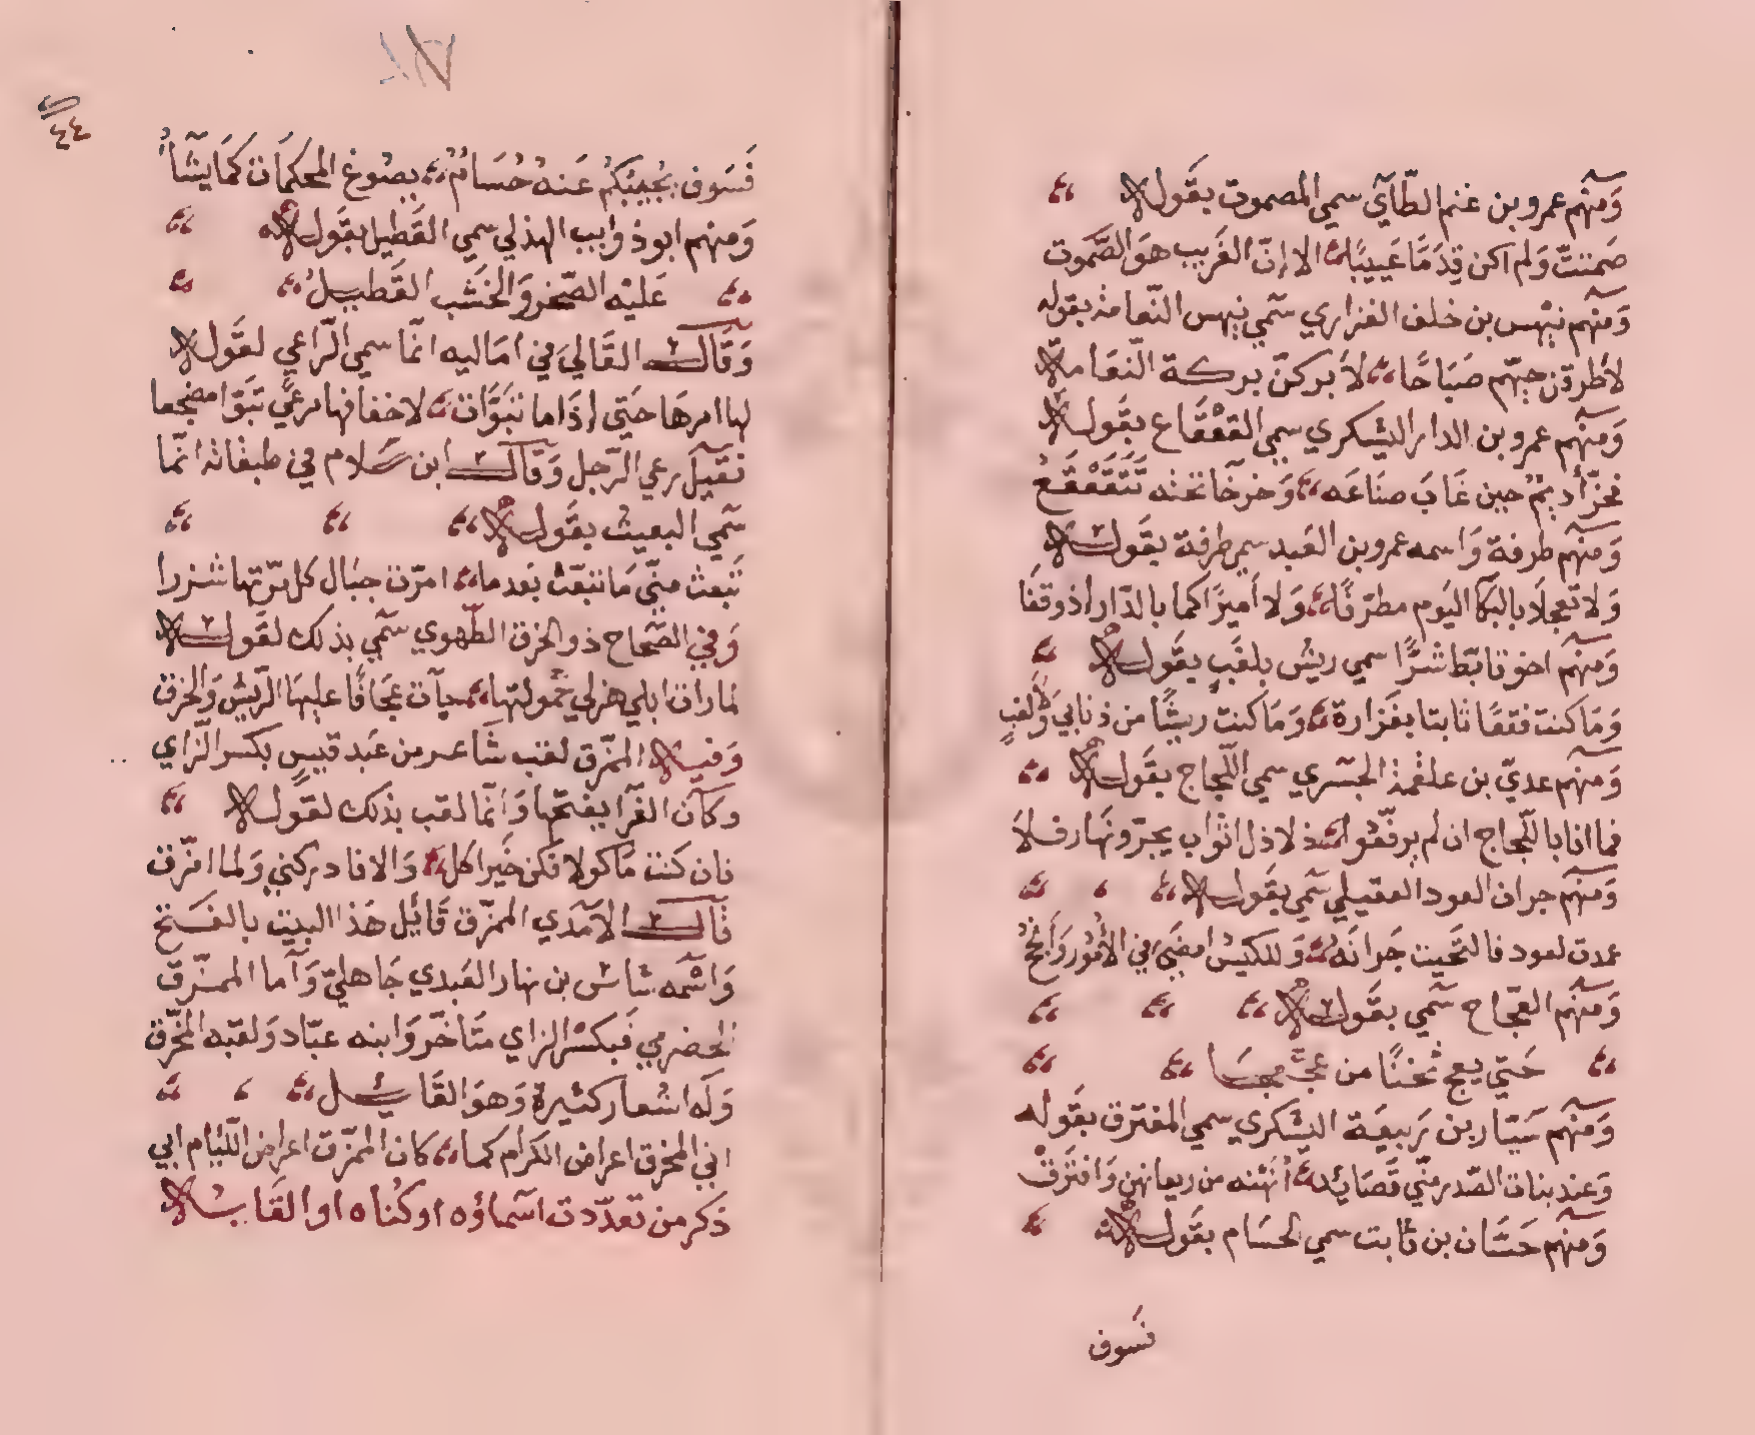 وَمنهم عمرو بن غنم الطّآئي سمي المصموت بقَوله
صَمتتّ وَلم اكن قِدَمًا عَيِيبًا الا إنّ الغَريب هوَ الصَّموت
وَمنهم نيهس بن خلف الفزاري سمّي نيهس النّعامة بقوله
لاَطرقن جبهّم صَبَاحًا لاَ بركنّ بركة النّعَامة
وَمنهم عمرو بن الدار اليشكري سمي القعْقَاع بقَوله
نخرّ أديم حين غَابَ صنَاعَه وَخر خَا تحته تَتَقَعْقَعُ
وَمنهم طرفة وَاسمه عمرو بن العَبد سمي طرفة بقَوله
وَلا تعجلَا بالبكَا اليَوم مطرّفًا وَلا اَميرَاكما بالدّار اذ وقفَا
وَمنهم اخو تابّط شرًّا سمي ريش بلغب بقَوله
وَمَا كنت فقعًا نابتا بقَزارة وَمَا كنت ريشًا من ذنابي وَلَغبِ
وَمنهم عديّ بن علقمة الجَسري سمي اللّجاج بقَوله
فما انا باللّجاج ان لم يرقّعُوا ذلاذل اثوَاب يجرّونهَا رفلاَ
وَمنهم جران العود العقيلي سمّي بقَوله
عمدت لعود فالتحَيت جَرانَه وَللكيسُ امضَي في الأمُور وَانجحُ
وَمنهم العجّاج سمّي بقَوله
حَتي يعج ثخنًا من عجعجَا
وَمنهم سَيّار بن رَبيعَة اليَشكري سمي المفترق بقَوله
وَعند بنات الصّدر منّي قَصَائِد اُنَهنه من ريعانهن وَافترَقْ
وَمنهم حَسّان بن ثابت سمي الحسَام بقَوله
فسَوف
٤٤
فَسَوف يجُيبَكُم عَنهُ حُسَامٌ يصُوغ المحكمَات كمَا يشَآءُ
وَمنهم ابو ذؤايب الهذلي سمي القَطيل بقَوله
عَليْه الصّخر وَالخَشب القَطيلُ
وَقَال القَاليَ في امَاليه انمّا سمي الرّاعي لقَوله
لها امرهَا حَتي إذَا ما تبَوَّات لاخفافها مرعيً تبَوّا مضجعا
فقيل رعي الرّجل وَقَال ابن سَلام في طبقاته انمّا
سمّي البعيث بقَوله
تَبعث منّي مَا تبعّث بَعد ما امرّت حبَال كل مرّتها شزرا
وَفي الصّحاح ذو الخرق الطّهوي سمّي بذلك لقَوله
لما رات ابلي هزلي حمولتها جآت عجَافًا عليهَا الرّيش وَالخرق
وَفيه الممزّق لقب شَاعر من عَبد قيسٍ بكسر الزّاي
وكان الفرّا يفتحها وَانّما لقب بذلك لقَوله
فان كنت مَاكولا فكن خَير اكل وَالا فادركني وَلما امزّق
قال الآمدَي الممزّق قَائِل هَذا البيت بالفتح
وَاسْمه شاس بن نهار العَبدي جَاهليّ وَاما الممزّق
الحضرمي فَبكسْر الزاي متَاخّر وَابنه عبّاد وَلقبه المخرّق
وَلَه اشعار كثيرة وَهوَ القَائِل
اني المخرق اعراض الكرام كما كان الممزّق اعراض اللّئام ابي
ذكر من تعدّدت اَسْماؤه او كُناه او القَابه